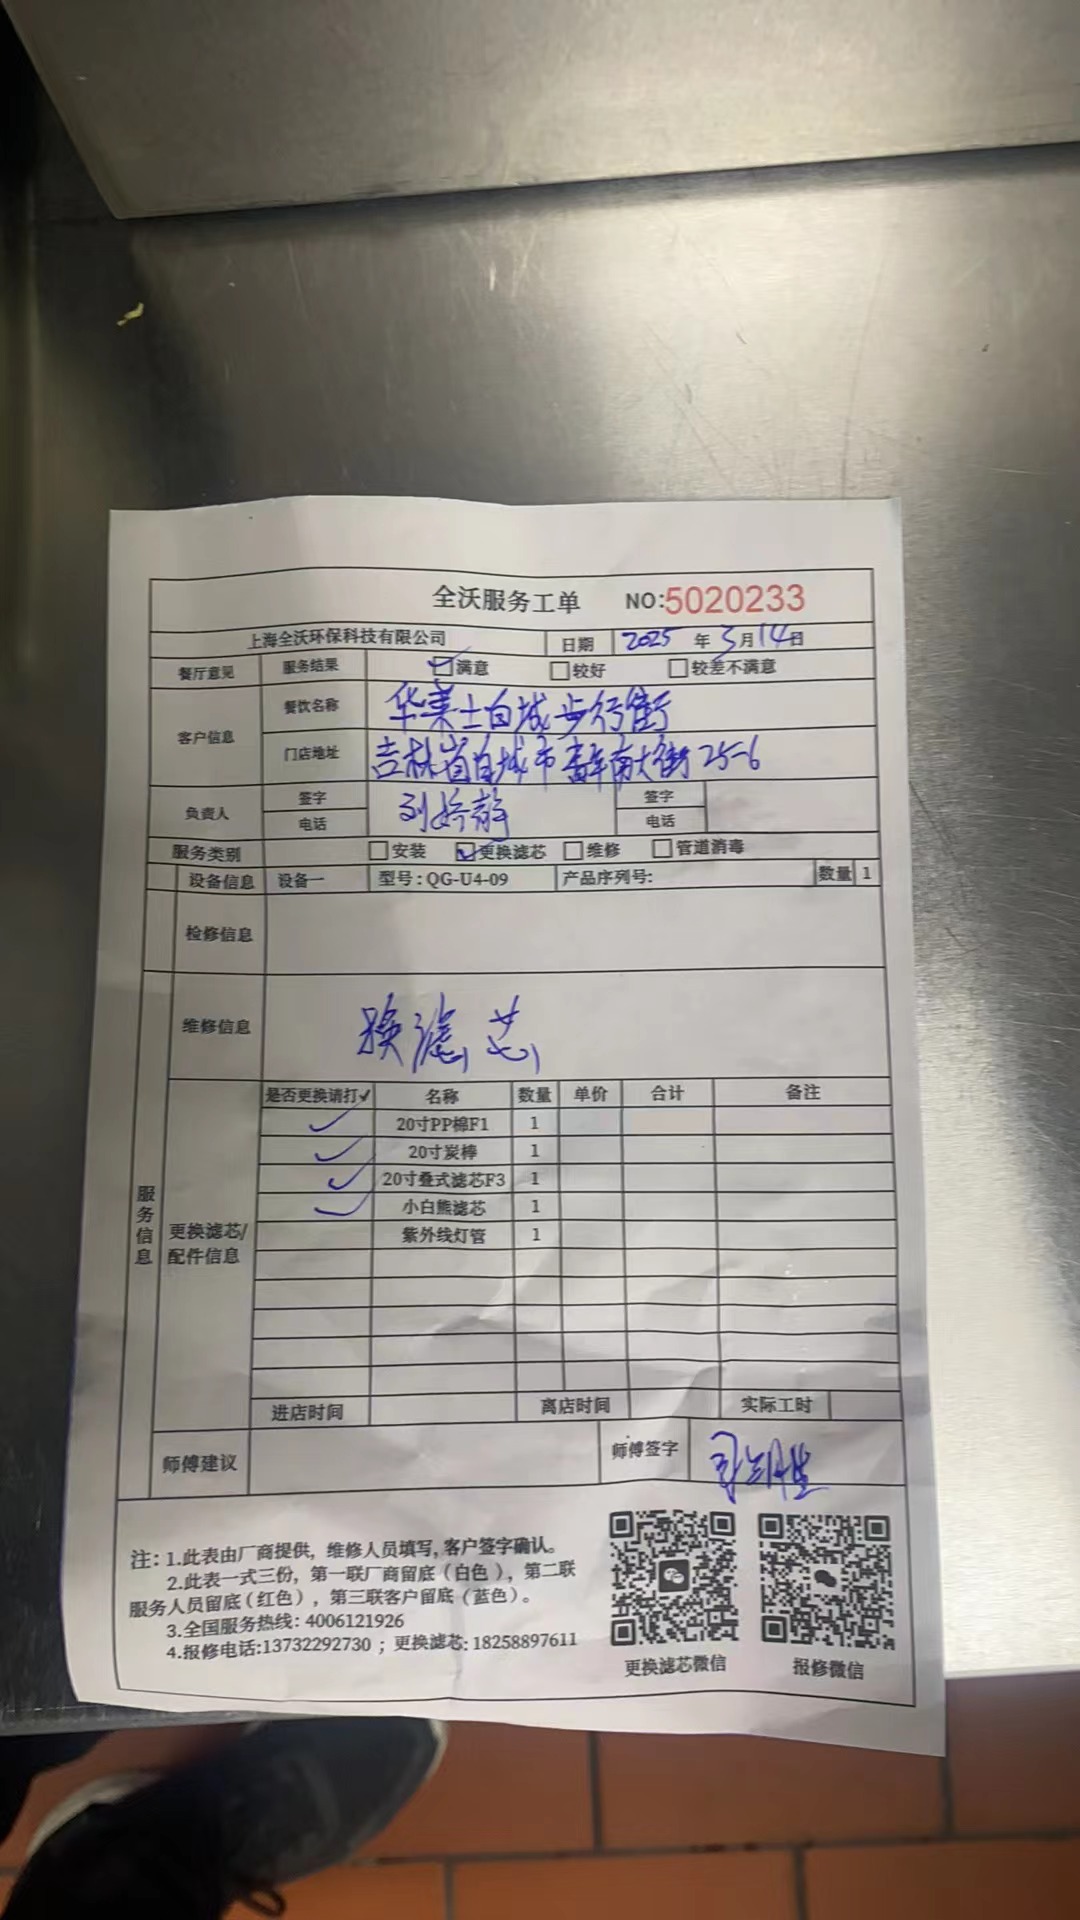 全沃服务工单 NO:5020233
上海全沃环保科技有限公司 日期 2025 年 3月14日
餐厅意见 服务结果 满意 较好 较差不满意
客户信息 餐饮名称 华莱士白城步行街
门店地址 吉林省白城市青年南大街25-6
负责人 签字 刘娇静 签字
电话 电话
服务类别 安装 更换滤芯 维修 管道消毒
设备信息 设备一 型号：QG-U4-09 产品序列号: 数量 1
检修信息
维修信息 换滤芯
服务信息
更换滤芯/配件信息
是否更换请打✓ 名称 数量 单价 合计 备注
✓ 20寸PP棉F1 1
✓ 20寸炭棒 1
✓ 20寸叠式滤芯F3 1
✓ 小白熊滤芯 1
紫外线灯管 1
进店时间 离店时间 实际工时
师傅建议 师傅签字
注：1.此表由厂商提供，维修人员填写，客户签字确认。
2.此表一式三份，第一联厂商留底（白色），第二联
服务人员留底（红色），第三联客户留底（蓝色）。
3.全国服务热线：4006121926
4.报修电话:13732292730；更换滤芯: 18258897611
更换滤芯微信 报修微信